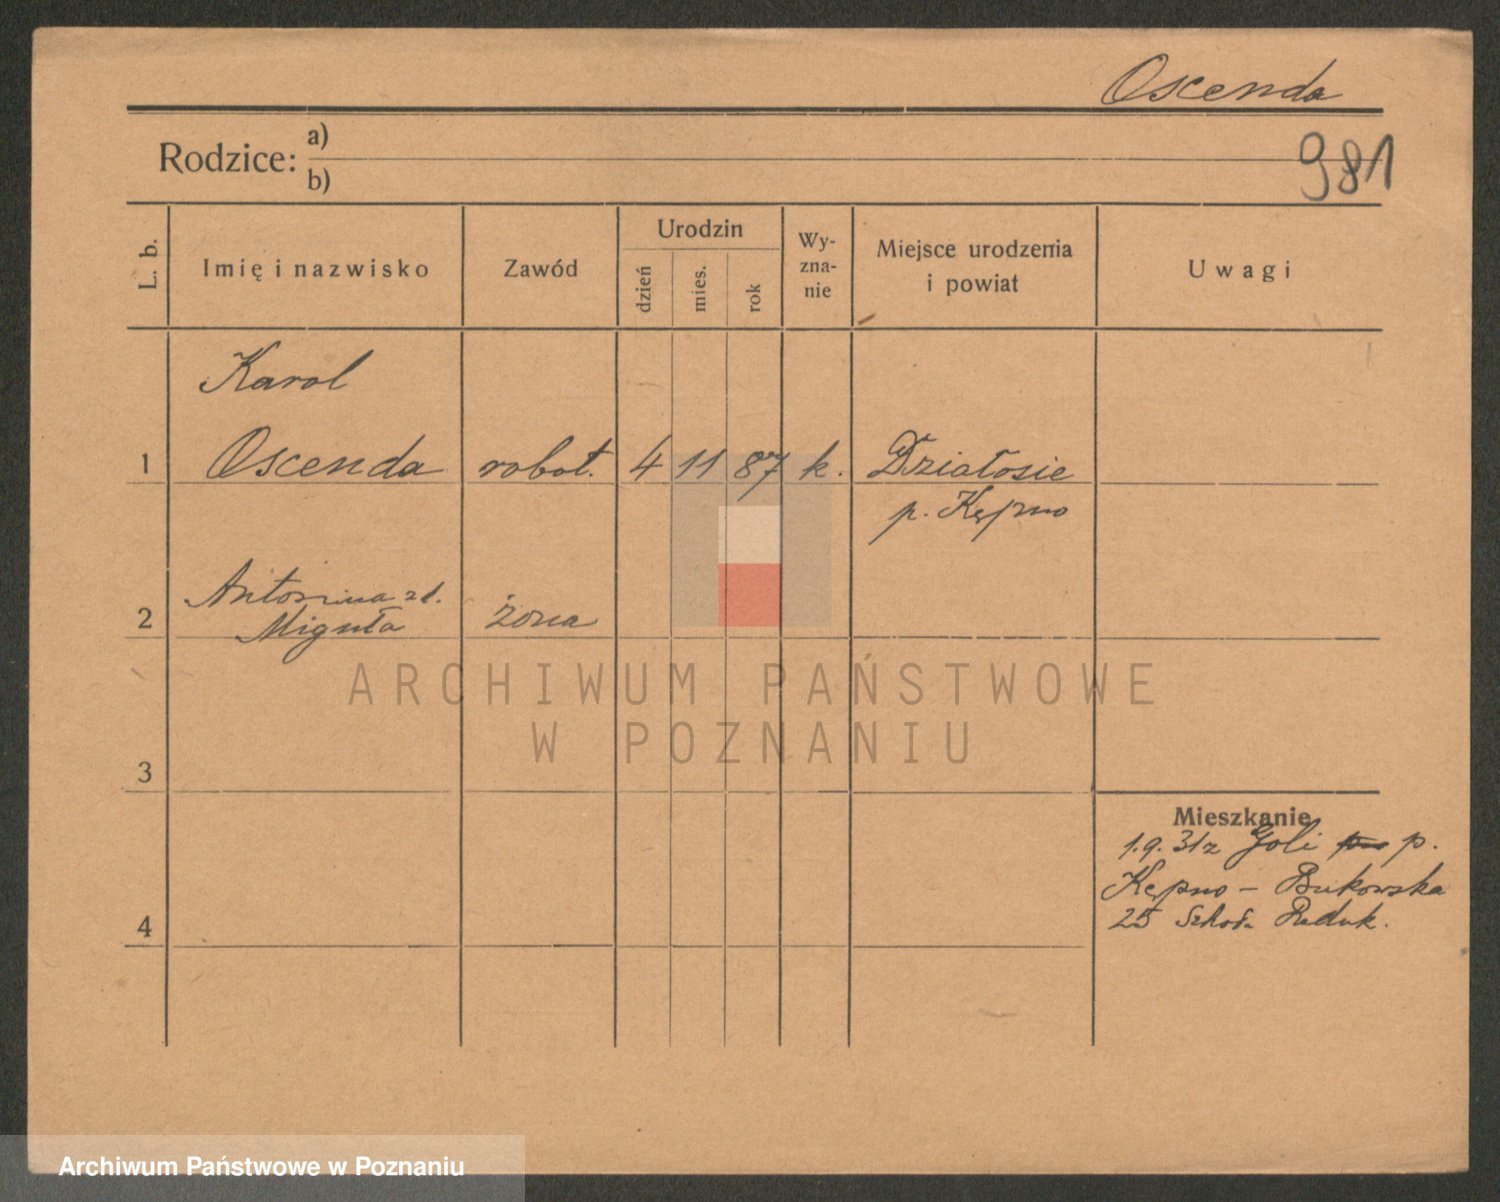 Oscenda
Rodzice: a)
b)
981
L. b.
Imię i nazwisko
Zawód
Urodzin
dzień
mies.
rok
Wy-
zna-
nie
Miejsce urodzenia
i powiat
Uwagi
Karol
1 Oscenda robot. 4 11 87 k. Działosie
p. Kępno
Antonina zd.
2 Miguła żona
ARCHIWUM PAŃSTWOWE
W POZNANIU
3
Mieszkanie
1.9.31 z Goli p.
Kępno – Bukowska
4
25 Szkoł. Reduk.
Archiwum Państwowe w Poznaniu